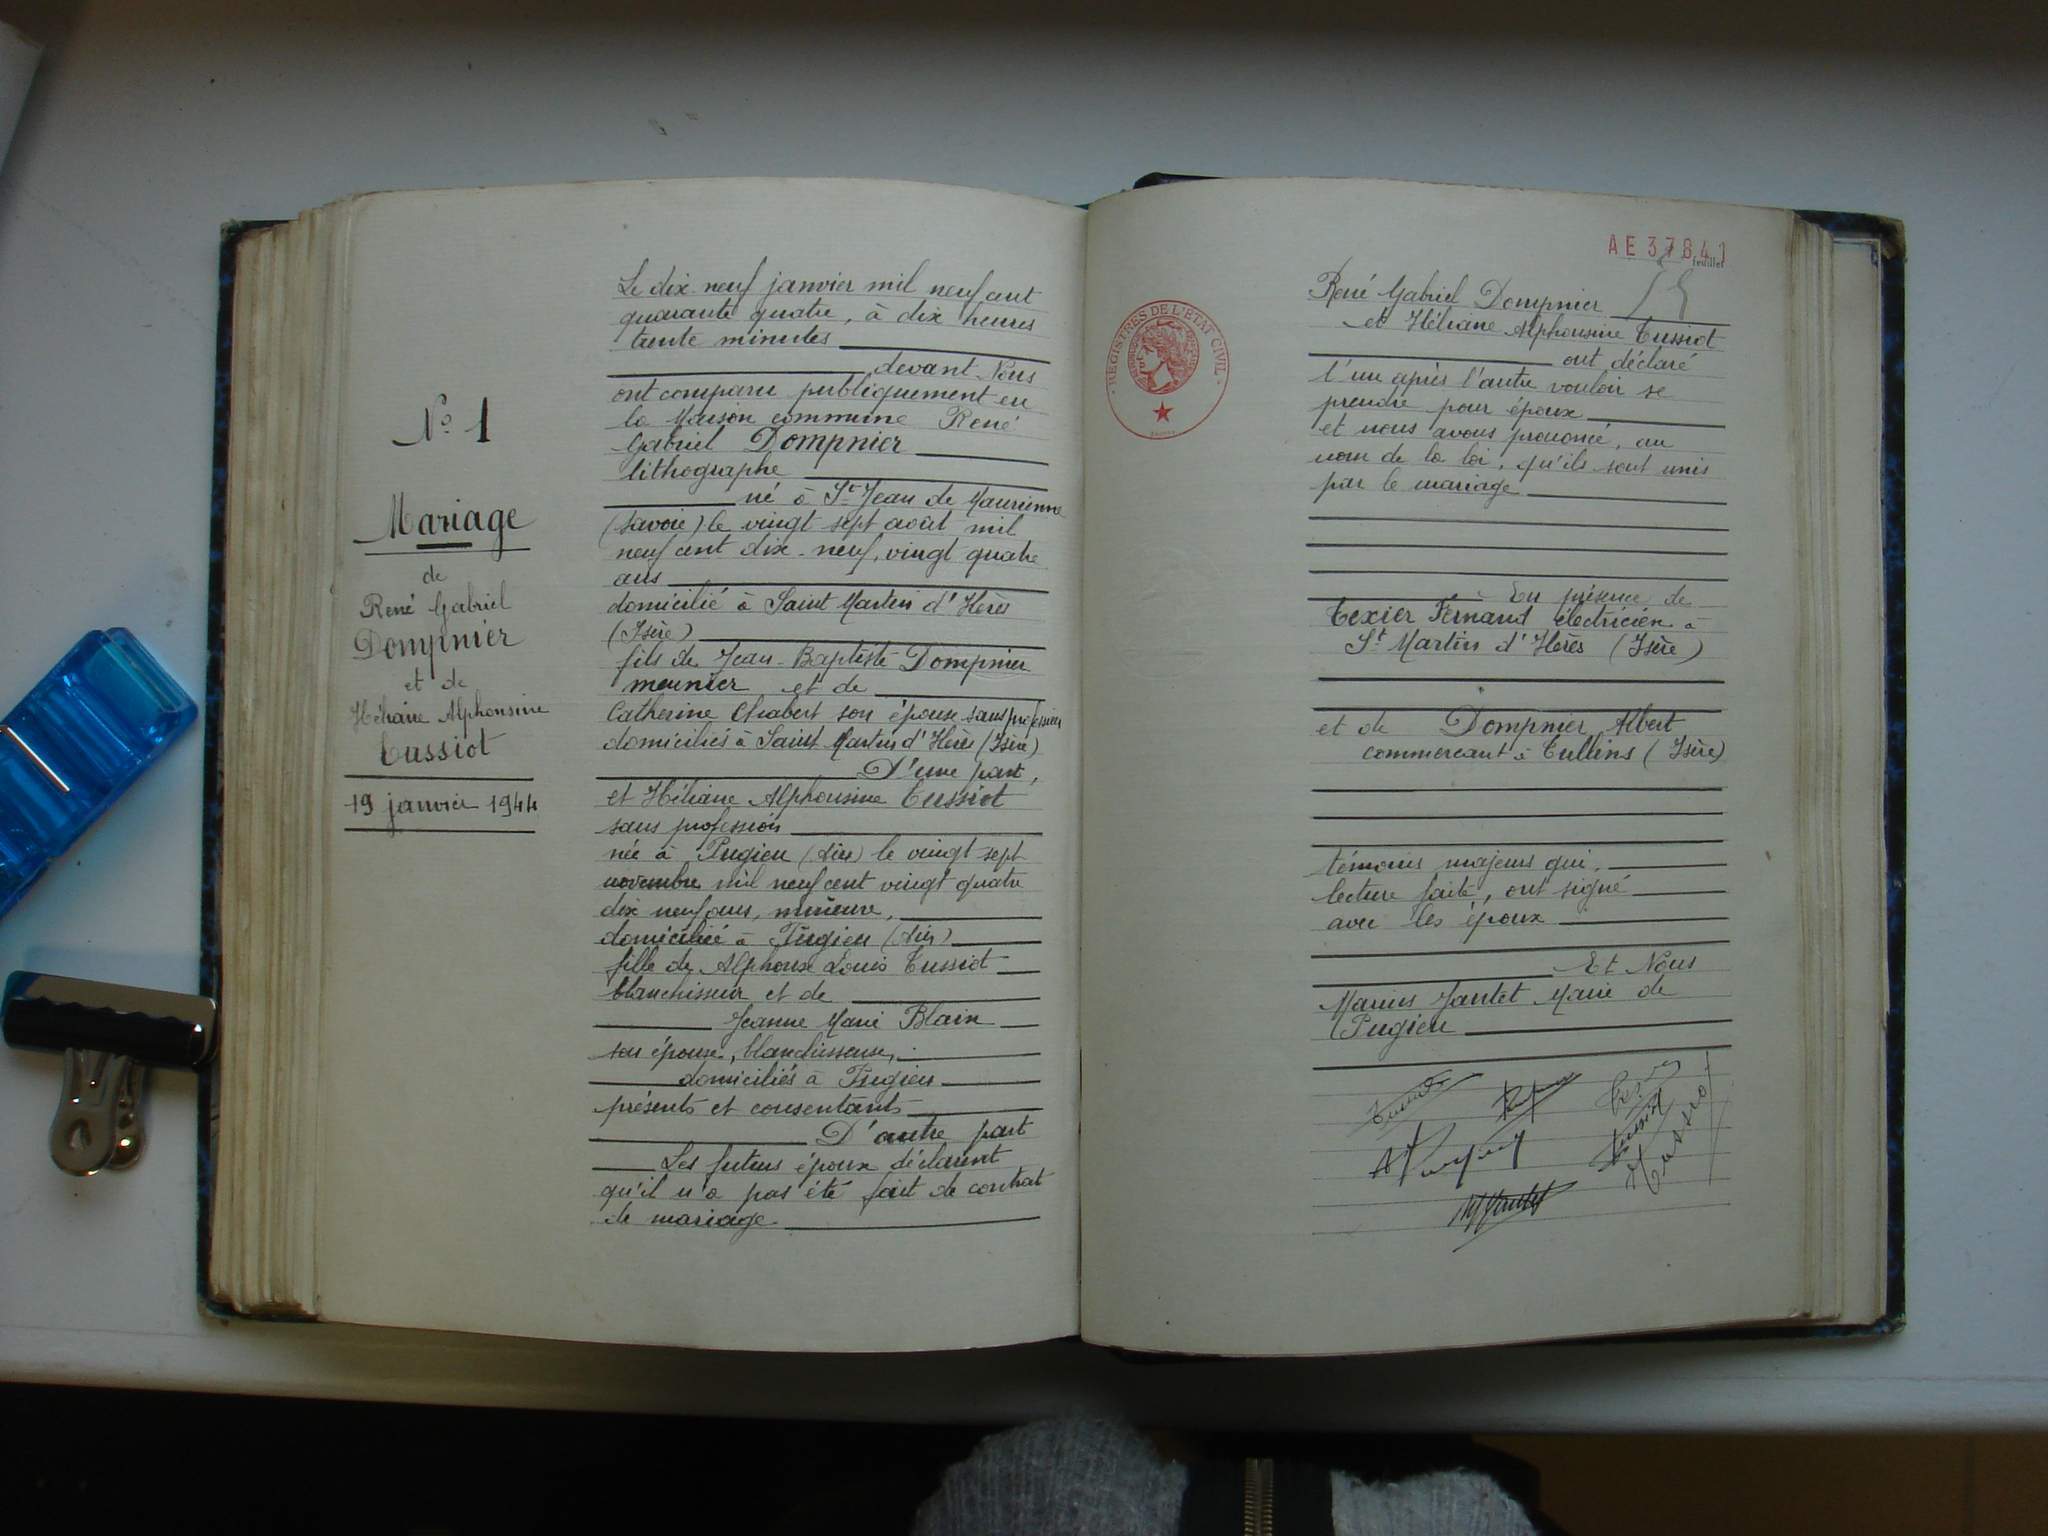 N° 1
Mariage
de
René Gabriel
Dompnier
et de
Héliane Alphonsine
Tussiot
19 janvier 1944
Le dix-neuf janvier mil neuf cent
quarante quatre, à dix heures
trente minutes
devant Nous
ont comparu publiquement en
la Maison commune René
Gabriel Dompnier
lithographe
né à St Jean de Maurienne
(Savoie) le vingt sept août mil
neuf cent dix-neuf, vingt quatre
ans
domicilié à Saint Martin d'Hères
(Isère)
fils de Jean-Baptiste Dompnier
meunier et de
Catherine Chabert son épouse sans profession
domiciliés à Saint Martin d'Hères (Isère)
D'une part,
et Héliane Alphonsine Tussiot
sans profession
née à Pugieu (Ain) le vingt sept
novembre mil neuf cent vingt quatre
dix neuf ans, mineure,
domiciliée à Pugieu (Ain)
fille de Alphonse Louis Tussiot
blanchisseur et de
Jeanne Marie Blain
son épouse, blanchisseuse,
domiciliés à Pugieu
présents et consentants
D'autre part
Les futurs époux déclarent
qu'il n'a pas été fait de contrat
de mariage
AE 37841
feuillet
REGISTRES DE L'ÉTAT CIVIL
René Gabriel Dompnier
et Héliane Alphonsine Tussiot
ont déclaré
l'un après l'autre vouloir se
prendre pour époux
et nous avons prononcé, au
nom de la loi, qu'ils sont unis
par le mariage
En présence de
Texier Fernand électricien à
St Martin d'Hères (Isère)
et de Dompnier Albert
commerçant à Tullins (Isère)
témoins majeurs qui,
lecture faite, ont signé
avec les époux
Et Nous
Marius Jantet Maire de
Pugieu
Tussiot
M Jantet